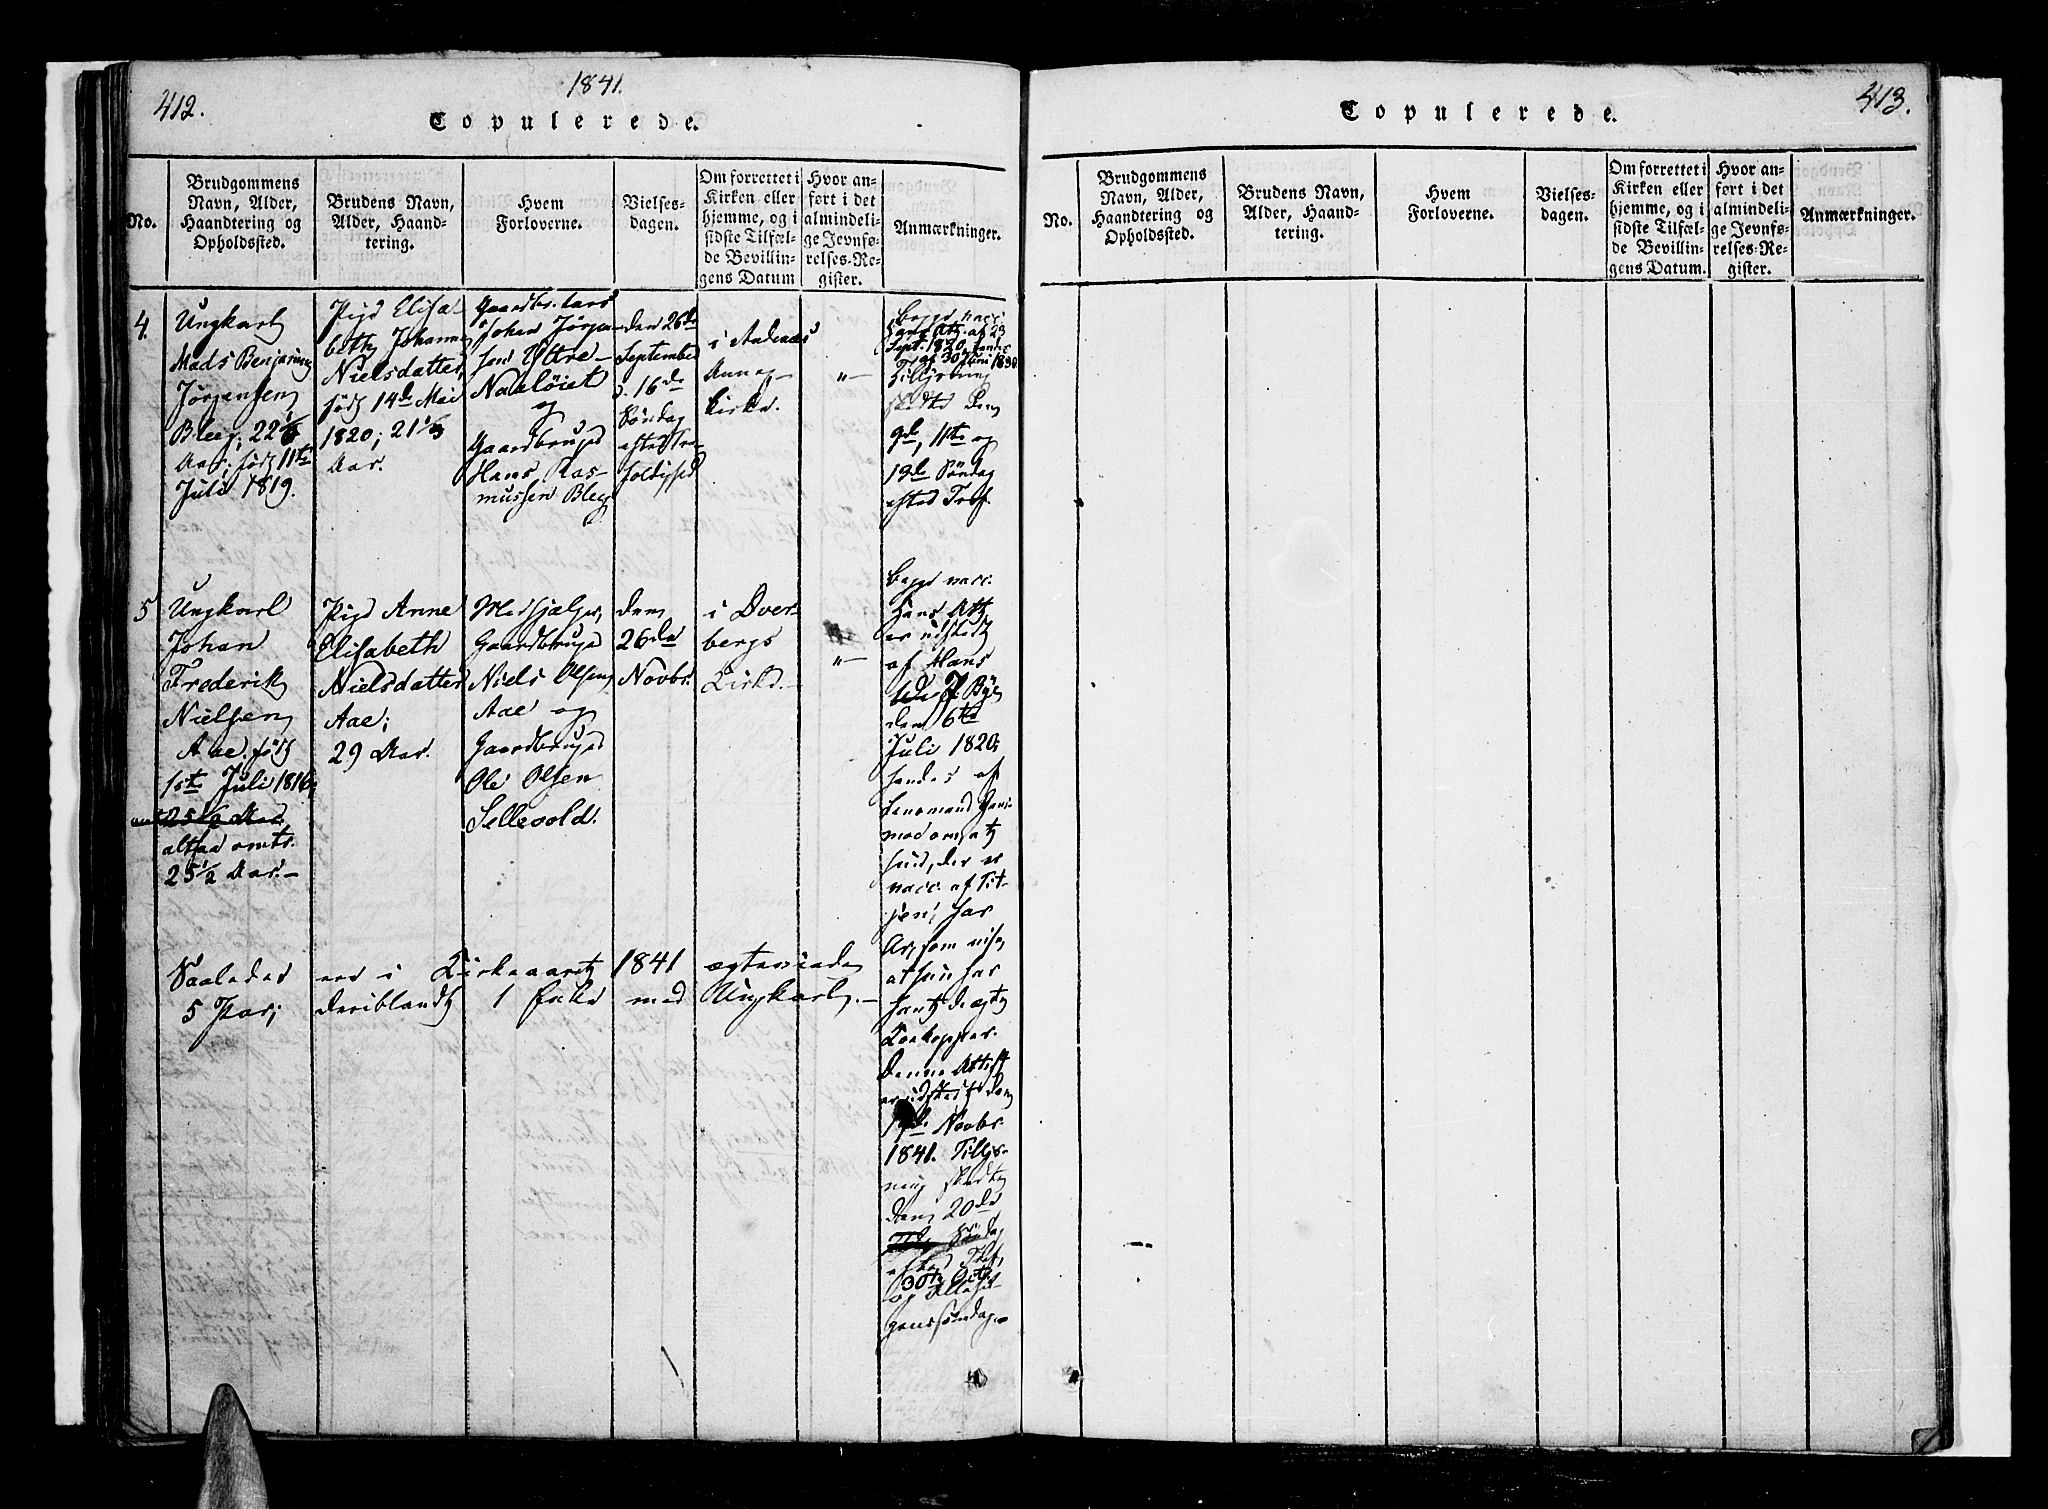 412.
1841.
Copulerede.
No.
Brudgommens
Navn, Alder,
Haandtering og
Opholdssted.
Brudens Navn,
Alder, Haand-
tering.
Hvem
Forloverne.
Vielses-
dagen.
Om forrettet i
Kirken eller
hjemme, og i
sidste Tilfæl-
de Bevillin-
gens Datum
Hvor an-
ført i det
almindeli-
ge Jevnfø-
relses-Re-
gister.
Anmærkninger.
4.
Ungkarl
Mads Benjamin
Jørgensen
Bleeg; 22 1/6
Aar; født 11te
Juli 1819.
Pige Elisa-
beth Johanna
Nielsdatter,
født 14de Mai
1820; 21 1/3
Aar.
Gaardbr. Lars
Johan Jørgen-
sen Ystre-
Naaløiet
og
Gaardbruger
Hans Ras-
mussen Bleg
den 26de
September
d. 16de
Søndag
efter Tre-
foldighed
i Andenæs
Annex-
kirke.
"–
begge vacc:
Hans Att. af 23
Sept. 1820, hendes
af 30 Juni 1830.
Tillysning
skedte den
9de, 11te og
13de Søndag
efter Tref.
5
Ungkarl
Johan
Frederik
Nielsen
Aae, født
1ste Juli 1816;
altsaa omtr.
25 1/2 Aar.–
Pige Anne
Elisabeth
Nielsdatter
Aae;
29 Aar.
Medhjælper,
Gaardbruger
Niels Olsen
Aae og
Gaardbruger
Ole Olsen
Sellevold.
den
26de
Novbr.
i Dver-
bergs
Kirke.–
"–
begge vacc.
Hans Att.
er udstedt
af Hans
Bye
den 6te
Juli 1820;
hendes af
Lensmand
hud, der er
vacc. af
har
Ar, som vise,
at hun har
havt de ægte
Koekopper.
Denne Attest
er udstedt den
Novbr.
1841. Tillys-
ning skedte
den 20de
Søndag
efter Tref,
30te Octb.
og Allehel-
genssøndag.
Saaledes ere i Kirkeaaret 1841 ægteviede
5 Par; deriblandt 1 Enke med Ungkarl.–
413.
Copulerede.
No.
Brudgommens
Navn, Alder,
Haandtering og
Opholdssted.
Brudens Navn,
Alder, Haand-
tering.
Hvem
Forloverne.
Vielses-
dagen.
Om forrettet i
Kirken eller
hjemme, og i
sidste Tilfæl-
de Bevillin-
gens Datum.
Hvor an-
ført i det
almindeli-
ge Jevnfø-
relses-Re-
gister.
Anmærkninger.